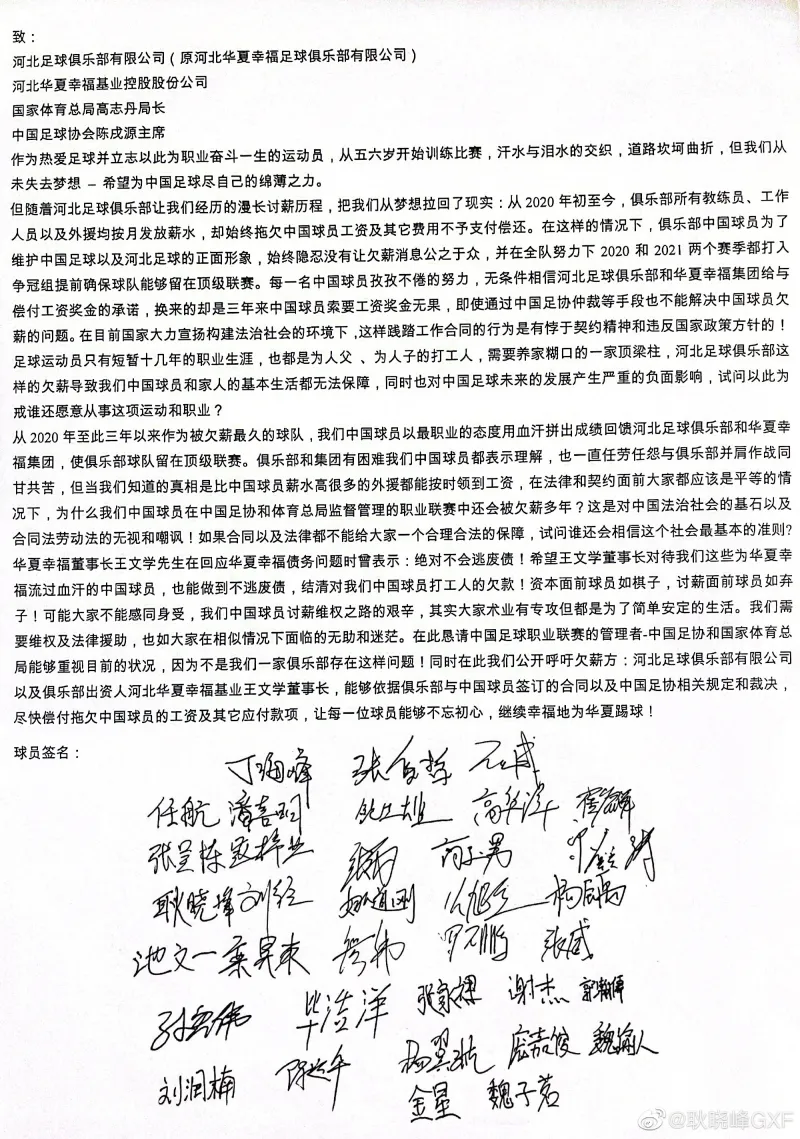 致：
河北足球俱乐部有限公司（原河北华夏幸福足球俱乐部有限公司）
河北华夏幸福基业控股股份公司
国家体育总局高志丹局长
中国足球协会陈戌源主席
作为热爱足球并立志以此为职业奋斗一生的运动员，从五六岁开始训练比赛，汗水与泪水的交织，道路坎坷曲折，但我们从
未失去梦想 – 希望为中国足球尽自己的绵薄之力。
但随着河北足球俱乐部让我们经历的漫长讨薪历程，把我们从梦想拉回了现实：从 2020 年初至今，俱乐部所有教练员、工作
人员以及外援均按月发放薪水，却始终拖欠中国球员工资及其它费用不予支付偿还。在这样的情况下，俱乐部中国球员为了
维护中国足球以及河北足球的正面形象，始终隐忍没有让欠薪消息公之于众，并在全队努力下 2020 和 2021 两个赛季都打入
争冠组提前确保球队能够留在顶级联赛。每一名中国球员孜孜不倦的努力，无条件相信河北足球俱乐部和华夏幸福集团给与
偿付工资奖金的承诺，换来的却是三年来中国球员索要工资奖金无果，即使通过中国足协仲裁等手段也不能解决中国球员欠
薪的问题。在目前国家大力宣扬构建法治社会的环境下，这样践踏工作合同的行为是有悖于契约精神和违反国家政策方针的！
足球运动员只有短暂十几年的职业生涯，也都是为人父 、为人子的打工人，需要养家糊口的一家顶梁柱，河北足球俱乐部这
样的欠薪导致我们中国球员和家人的基本生活都无法保障，同时也对中国足球未来的发展产生严重的负面影响，试问以此为
戒谁还愿意从事这项运动和职业？
从 2020 年至此三年以来作为被欠薪最久的球队，我们中国球员以最职业的态度用血汗拼出成绩回馈河北足球俱乐部和华夏幸
福集团，使俱乐部球队留在顶级联赛。俱乐部和集团有困难我们中国球员都表示理解，也一直任劳任怨与俱乐部并肩作战同
甘共苦，但当我们知道的真相是比中国球员薪水高很多的外援都能按时领到工资，在法律和契约面前大家都应该是平等的情
况下，为什么我们中国球员在中国足协和体育总局监督管理的职业联赛中还会被欠薪多年？这是对中国法治社会的基石以及
合同法劳动法的无视和嘲讽！如果合同以及法律都不能给大家一个合理合法的保障，试问谁还会相信这个社会最基本的准则?
华夏幸福董事长王文学先生在回应华夏幸福债务问题时曾表示：绝对不会逃废债！希望王文学董事长对待我们这些为华夏幸
福流过血汗的中国球员，也能做到不逃废债，结清对我们中国球员打工人的欠款！资本面前球员如棋子，讨薪面前球员如弃
子！可能大家不能感同身受，我们中国球员讨薪维权之路的艰辛，其实大家术业有专攻但都是为了简单安定的生活。我们需
要维权及法律援助，也如大家在相似情况下面临的无助和迷茫。在此恳请中国足球职业联赛的管理者-中国足协和国家体育总
局能够重视目前的状况，因为不是我们一家俱乐部存在这样问题！同时在此我们公开呼吁欠薪方：河北足球俱乐部有限公司
以及俱乐部出资人河北华夏幸福基业王文学董事长，能够依据俱乐部与中国球员签订的合同以及中国足协相关规定和裁决，
尽快偿付拖欠中国球员的工资及其它应付款项，让每一位球员能够不忘初心，继续幸福地为华夏踢球！
球员签名：
丁海峰
任航 潘喜明 高华泽
张呈栋 寇梓
耿晓峰 刘径
池文一
张威
毕溢洋 谢杰
刘润楠 杨翼航 庞嘉俊 魏瑜人
金星 魏子茗
@耿晓峰GXF